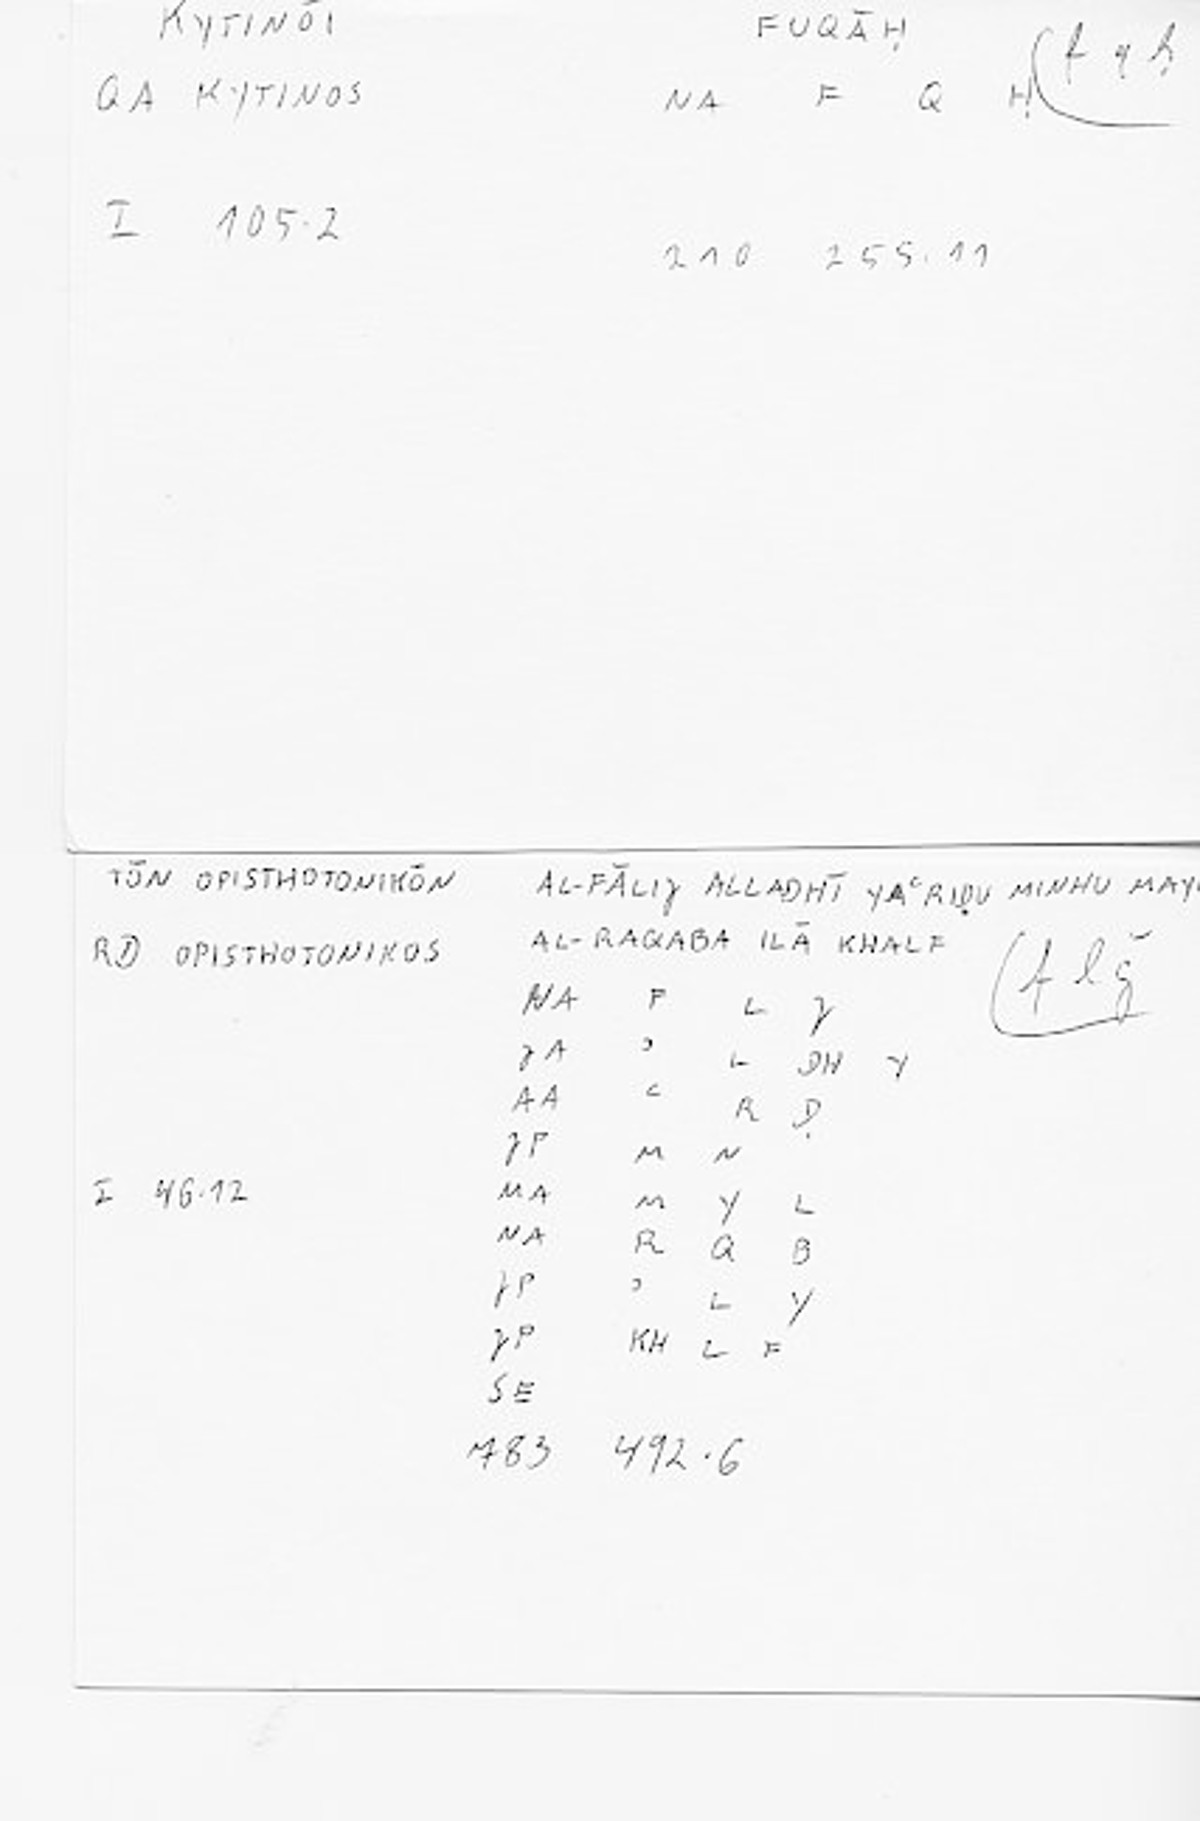 KYTINŌI FUQĀḤ (f q ḥ
QA KYTINOS NA F Q Ḥ
I 105.2
210 255.11
TŌN OPISTHOTONIKŌN AL-FĀLIJ ALLADHĪ YAʿRIḌU MINHU
RD OPISTHOTONIKOS AL-RAQABA ILĀ KHALF (f l ǧ
NA F L J
JA ʾ L DH Y
AA ʿ R Ḍ
JP M N
I 46.12 MA M Y L
NA R Q B
JP ʾ L Y
JP KH L F
SE
783 492.6